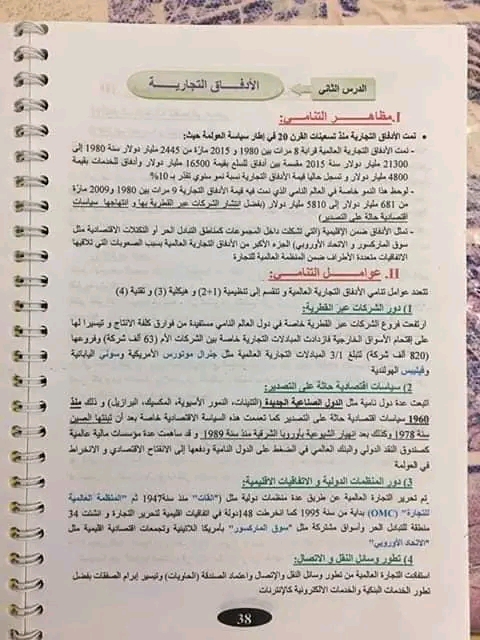 الدرس الثاني
الأدفـاق التجاريـة
I.مظاهـر التنامي:
• نمت الأدفاق التجارية منذ تسعينات القرن 20 في إطار سياسة العولمة حيث:
- نمت الأدفاق التجارية العالمية قرابة 8 مرات بين 1980 و 2015 مارّة من 2445 مليار دولار سنة 1980 إلى
21300 مليار دولار سنة 2015 مقسمة بين أدفاق للسلع بقيمة 16500 مليار دولار وأدفاق للخدمات بقيمة
4800 مليار دولار و تسجل حاليا قيمة الأدفاق التجارية نسبة نمو سنوي تقدّر بـ 10%
- لوحظ هذا النمو خاصة في العالم النامي الذي نمت فيه قيمة الأدفاق التجارية 9 مرات بين 1980 و2009 مارّة
من 681 مليار دولار إلى 5810 مليار دولار (بفضل انتشار الشركات عبر القطرية بها و إنتهاجها سياسات
اقتصادية حاثة على التصدير)
- تمثل الأدفاق ضمن الإقليمية (التي اشتكلت داخل المجموعات كمناطق التبادل الحر أو التكتلات الاقتصادية مثل
سوق الماركسور و الاتحاد الأوروبي) الجزء الأكبر من الأدفاق التجارية العالمية بسبب الصعوبات التي تلاقيها
الاتفاقيات متعددة الأطراف ضمن المنظمة العالمية للتجارة
II. عوامـل التنامي:
تتعدد عوامل تنامي الأدفاق التجارية العالمية و تنقسم إلى تنظيمية (1+2) و هيكلية (3) و تقنية (4)
1) دور الشركات عبر القطرية:
ارتفعت فروع الشركات عبر القطرية خاصة في دول العالم النامي مستفيدة من فوارق كلفة الانتاج و تيسيرا لها
على إقتحام الأسواق الخارجية فازدادت المبادلات التجارية خاصة بين شركات الأم (63 ألف شركة) وفروعها
(820 ألف شركة) لتبلغ 1/3 المبادلات التجارية العالمية مثل جنرال موتورس الأمريكية وسوني اليابانية
وفيليبس الهولندية
2) سياسات اقتصادية حاثة على التصدير:
اتبعت عدة دول نامية مثل الدول الصناعية الجديدة (التنينات، النمور الأسيوية، المكسيك، البرازيل) و ذلك منذ
1960 سياسات اقتصادية حاثة على التصدير كما تعممت هذه السياسة الاقتصادية خاصة بعد أن تبنتها الصين
سنة 1978 وكذلك بعد انهيار الشيوعية بأوروبا الشرقية منذ سنة 1989 و قد ساهمت عدة مؤسسات مالية عالمية
كصندوق النقد الدولي والبنك العالمي في الضغط على الدول النامية ودفعها إلى الإنفتاح الإقتصادي و الانخراط
في العولمة
3) دور المنظمات الدولية و الاتفاقيات الاقليمية:
تم تحرير التجارة العالمية عن طريق عدة منظمات دولية مثل "القات" منذ سنة1947 ثم "المنظمة العالمية
للتجارة" (OMC) بداية من سنة 1995 كما انخرطت 148دولة في اتفاقيات اقليمية لتحرير التجارة و انشئت 34
منطقة للتبادل الحر وأسواق مشتركة مثل "سوق الماركسور" بأمريكا اللاتينية وتجمعات اقتصادية اقليمية مثل
"الاتحاد الأوروبي"
4) تطور وسائل النقل و الاتصال:
استفادت التجارة العالمية من تطور وسائل النقل والإتصال واعتماد الصندقة (الحاويات) وتيسير إبرام الصفقات بفضل
تطور الخدمات البنكية والخدمات الالكترونية كالإنترنات
38